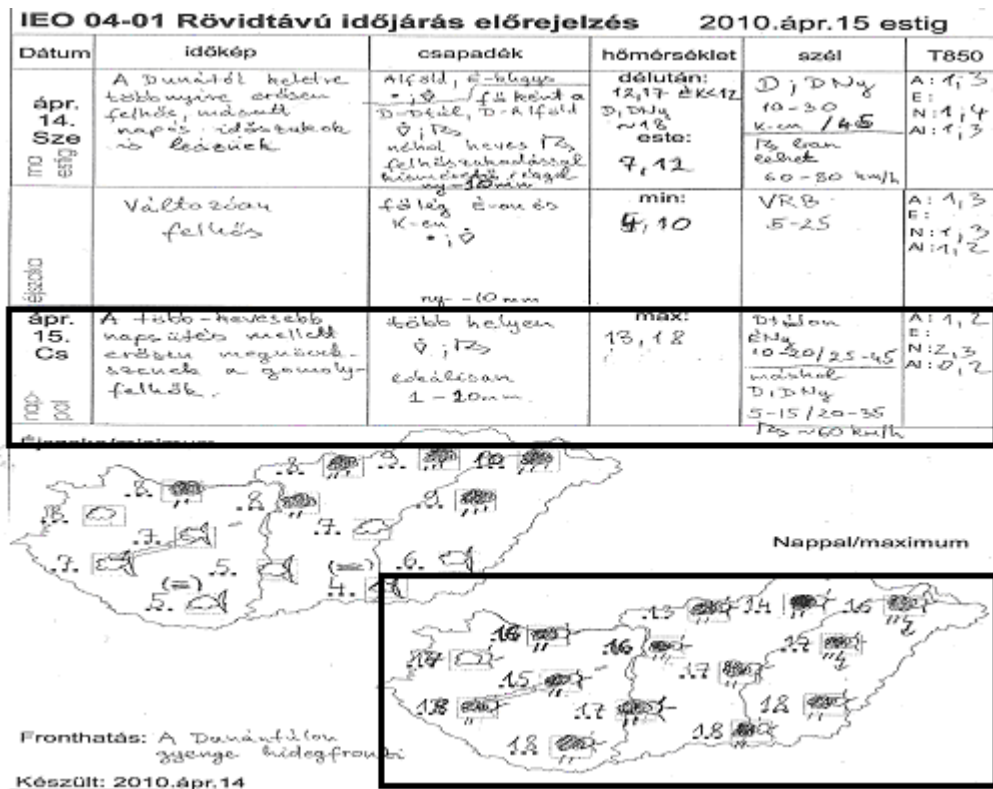 IEO 04-01 Rövidtávú időjárás előrejelzés 2010.ápr.15 estig
Dátum időkép csapadék hőmérséklet szél T850
ápr. 14. Sze
ma estig
A Dunától keletre
többnyire erősen
felhős, másutt
napos időszakok
is lesznek
Alföld,
főként a
D-Dtúl, D-Alföld
néhol heves
felhőszakadással
ny-10mm
délután:
12,17 ÉK<12
D, DNy
~18
este:
7,12
D; DNy
10-30
K-en /45
ban
lehet
60-80 km/h
A: 1,3
E:
N: 1,4
Al: 1,3
éjszaka
Változóan
felhős
főleg É-on és
K-en
ny--10mm
min:
4,10
VRB
5-25
A: 1,3
E:
N: 1,3
Al: 1,2
ápr. 15. Cs
nap- pol
A több-kevesebb
napsütés mellett
erősen megnövek-
szenek a gomoly-
felhők.
több helyen
lokálisan
1-10mm
max:
13,18
Dtúlon
ÉNy
10-20/25-45
máshol
D, DNy
5-15/20-35
~60 km/h
A: 1,2
E:
N: 2,3
Al: 0,2
Éjszaka/minimum
.8. .9. 10.
.8. .8. .9.
.7. .7.
.7. .5. (=) .6.
(=) 4.
5.
Nappal/maximum
.13 .14 .16
.16 .16 .17
.15 .17
.17 18
.18 .18
Fronthatás: A Dunántúlon
gyenge hidegfronti
Készült: 2010.ápr.14